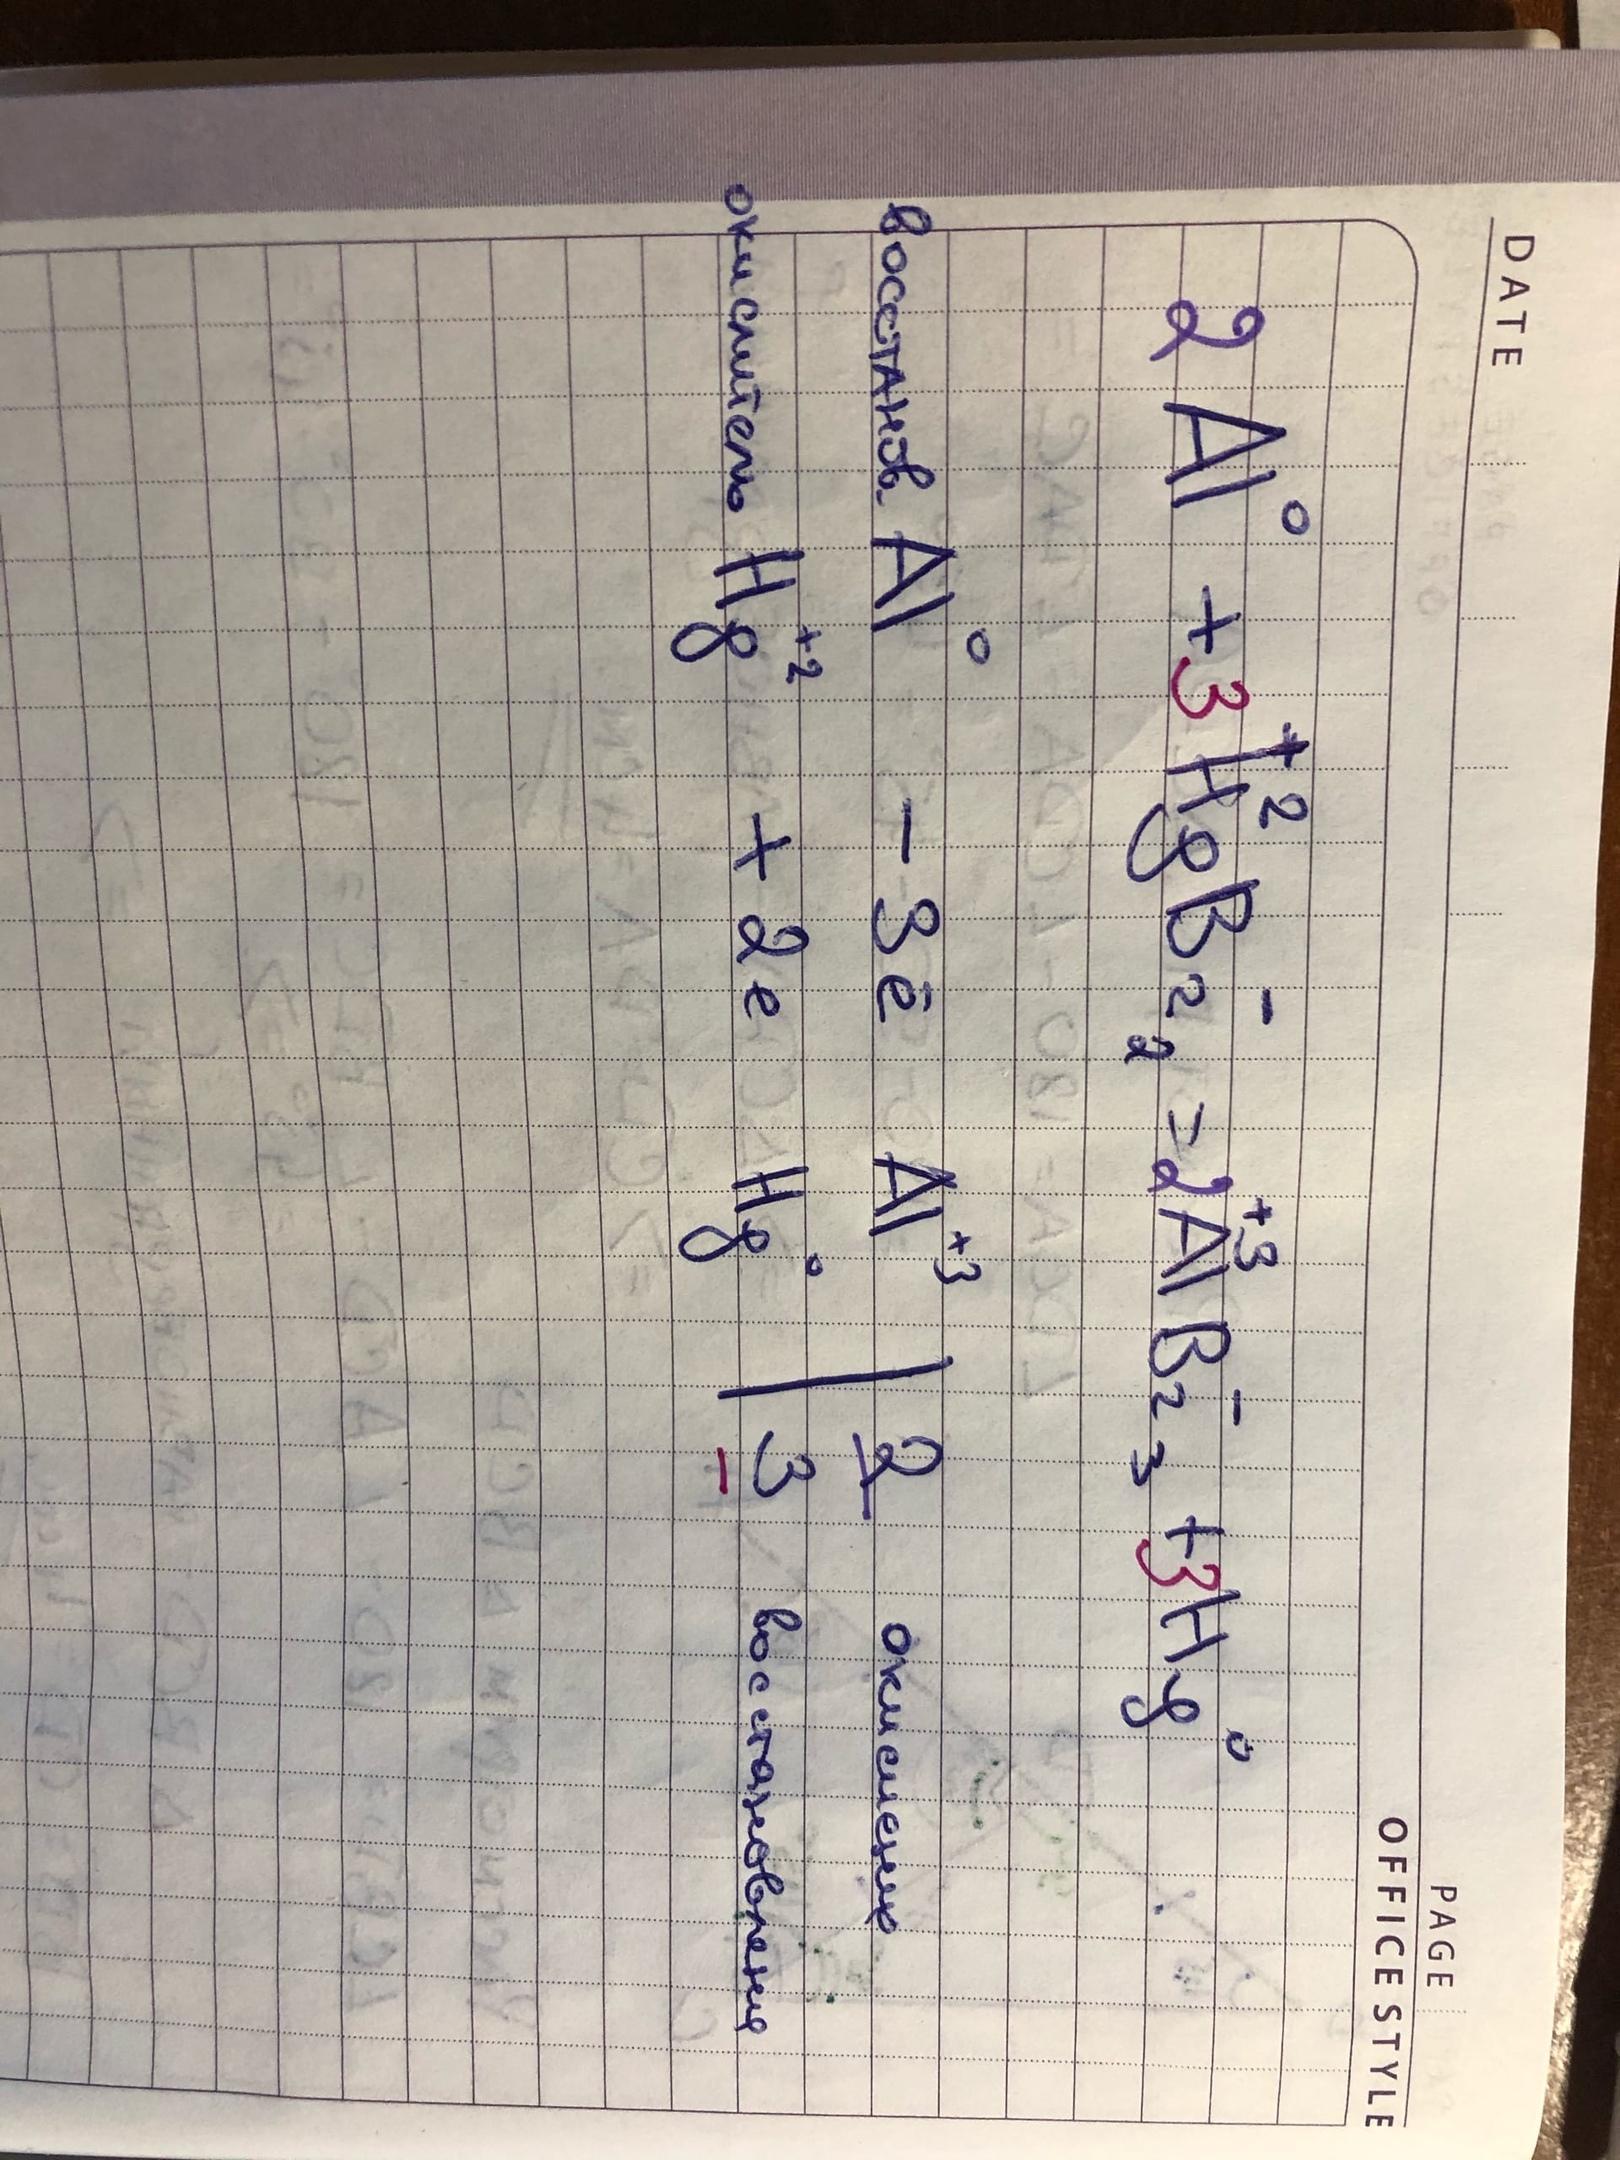 DATE
PAGE
OFFICE STYLE
2Al⁰ + 3Hg⁺²Br⁻₂ = 2Al⁺³Br⁻₃ + 3Hg⁰
восстанов. Al⁰ - 3ē Al⁺³ | 2 окисление
окислитель Hg⁺² + 2e Hg⁰ | 3 восстановления